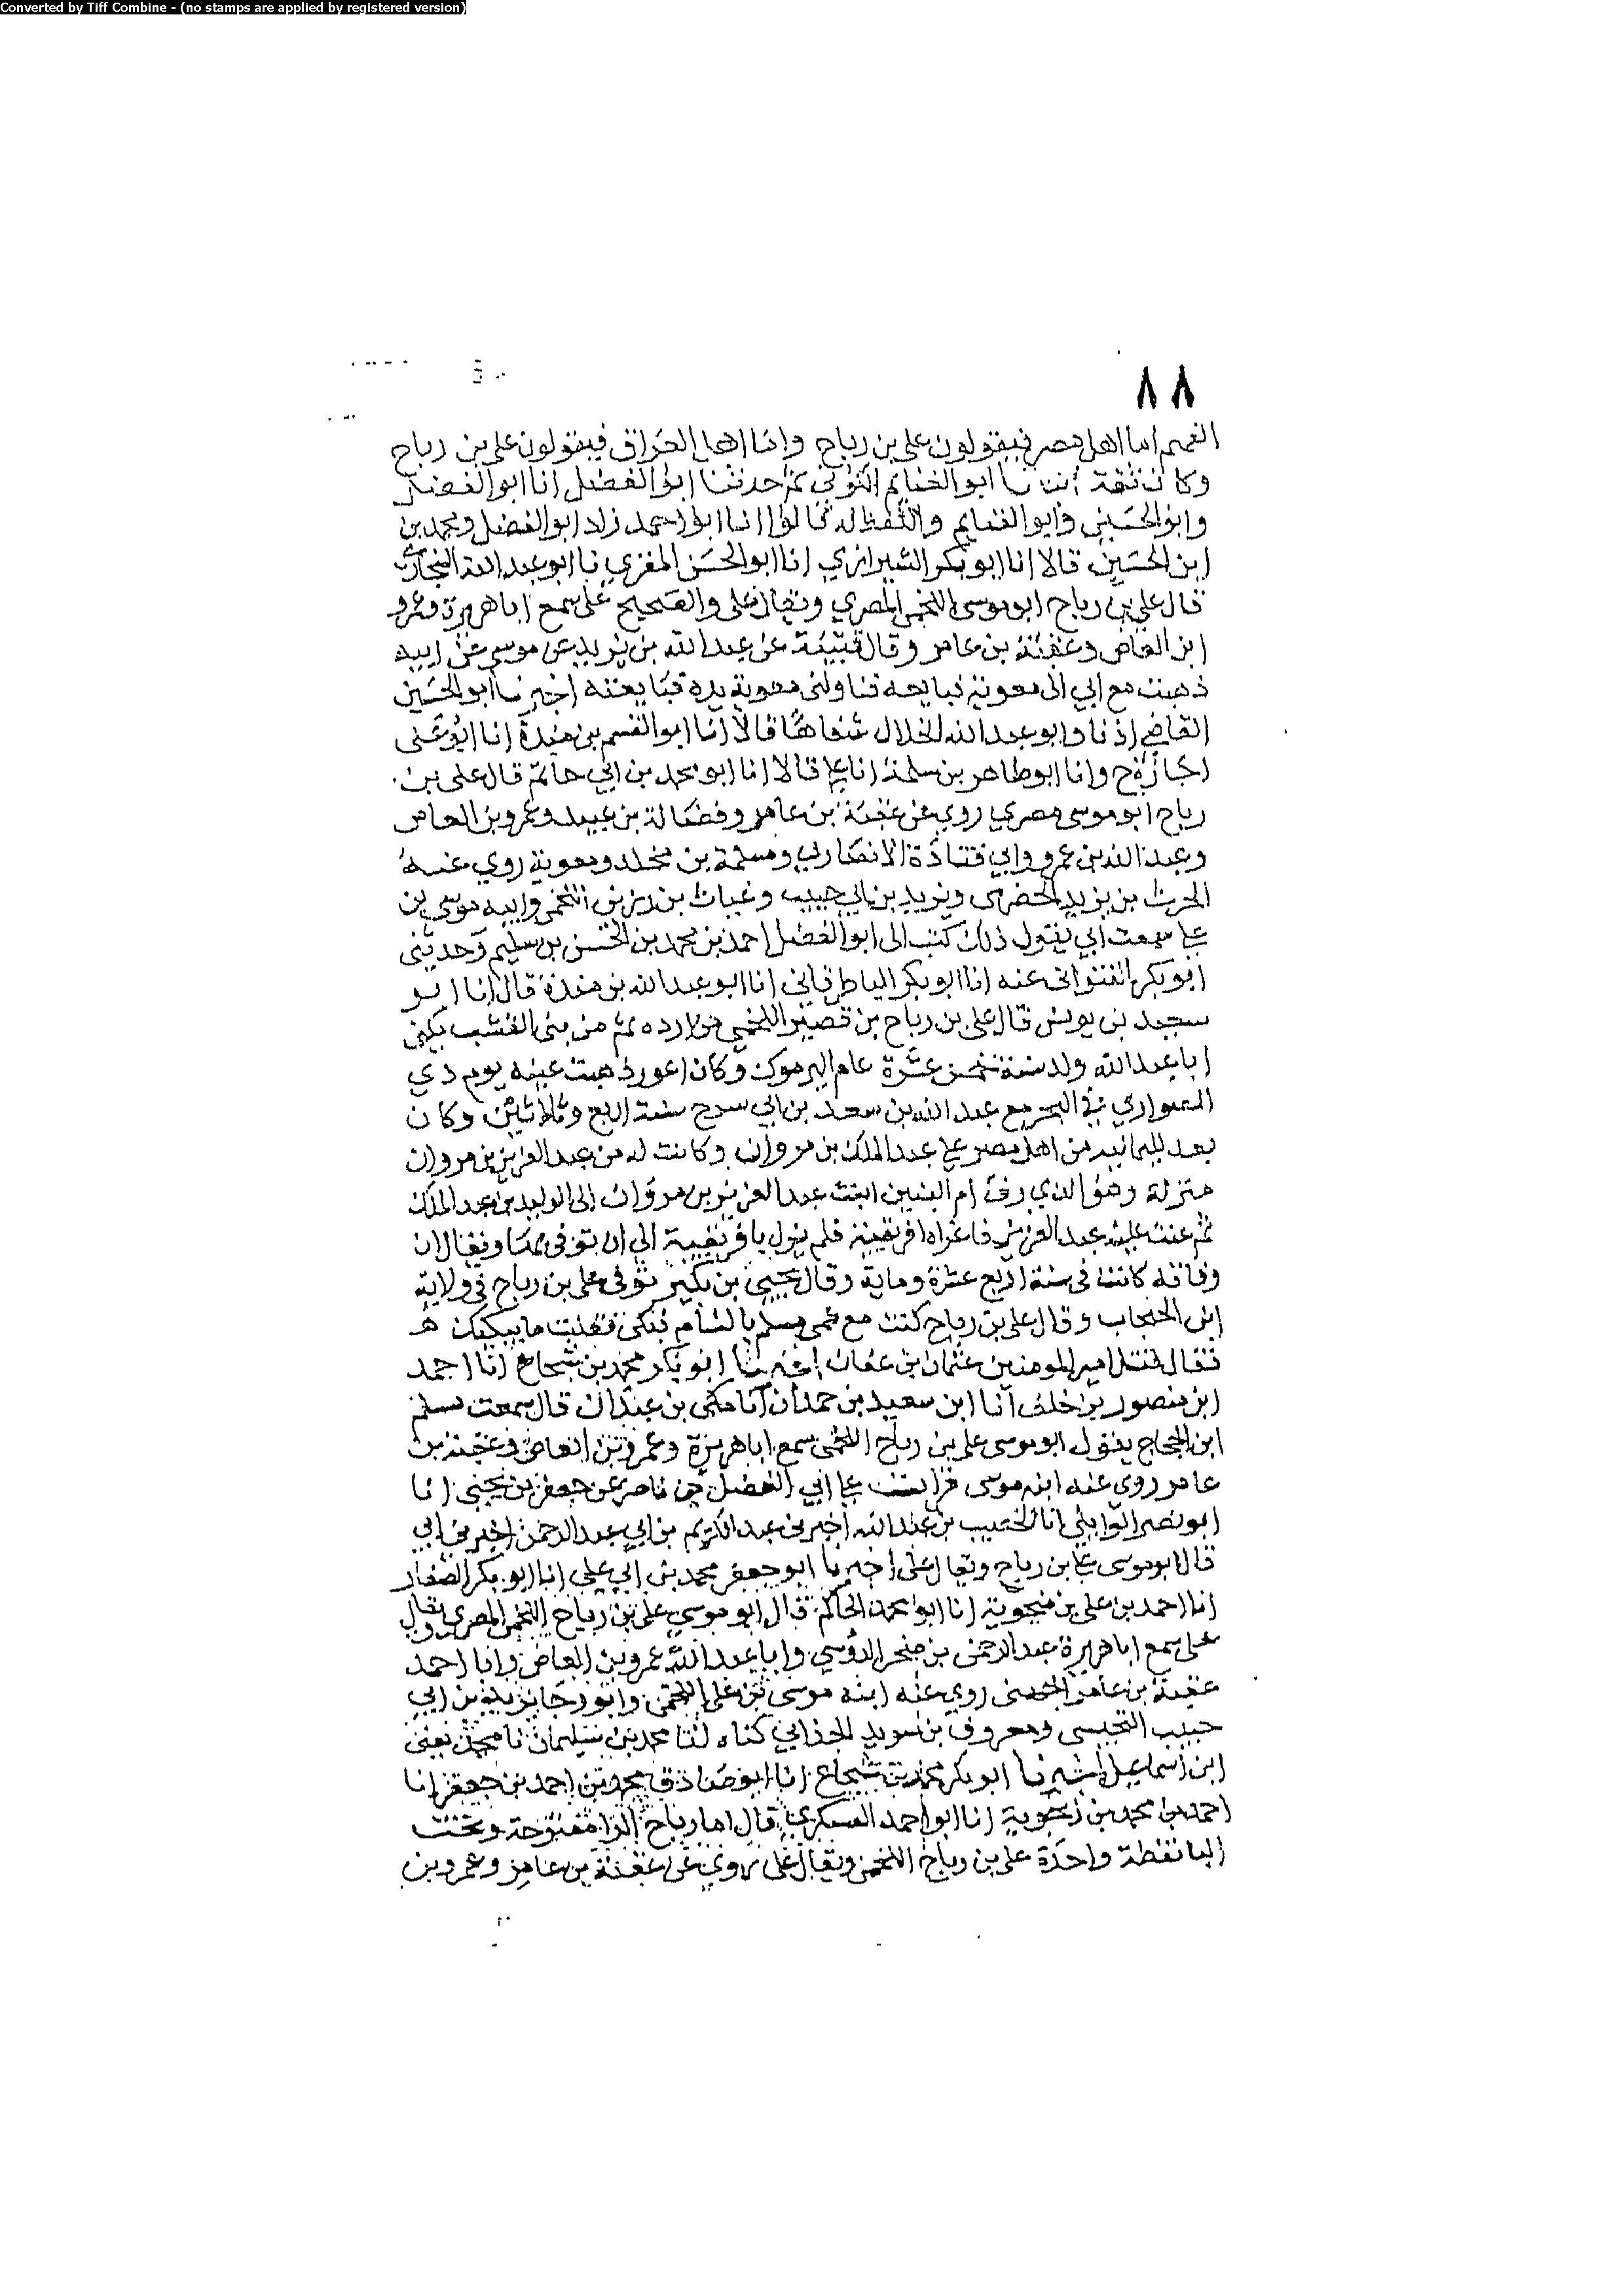 Converted by Tiff Combine - (no stamps are applied by registered version)
٨٨
الفهم اما اهل مصر فيقولون علي بن رباح واما اهل العراق فيقولون علي بن رباح
وكان ثقة انبانا ابو الغنايم النرسي ثم حدثنا ابو الفضل انا ابو الفضل
وابو الحسين وابو الغنايم واللفظ له قالوا انا ابو احمد زاد ابو الفضل ومحمد بن
ابن الحسين قالا انا ابو بكر الشيرازي انا ابو الحسن المقري نا ابو عبد الله البخاري
قال علي بن رباح ابو موسى اللخمي المصري ويقال علي والصحيح علي سمع ابا هريرة وعمرو
ابن العاص وعقبة بن عامر وقال قتيبة عن عبد الله بن يزيد عن موسى عن ابيه
ذهبت مع ابي الى معوية نبايعه فناولني معوية يده فبايعته اخبرنا ابو الحسين
القاضي اذنا وابو عبد الله الخلال شفاها قالا انا ابو القسم بن مندة انا ابو علي
اجازة ح وانا ابو طاهر بن سلمة انا علي قالا انا ابو محمد بن ابي حاتم قال علي بن
رباح ابو موسى مصري روى عن عقبة بن عامر وفضالة بن عبيد وعمرو بن العاص
وعبد الله بن عمرو وابي قتادة الانصاري ومسلمة بن مخلد ومعوية روى عنه
الحرث بن يزيد الحضرمي ويزيد بن ابي حبيب وغياث بن رزين اللخمي وابنه موسى بن
علي سمعت ابي يقول ذلك كتب الى ابو الفضل احمد بن محمد بن الحسن بن سليم وحدثني
ابو بكر اللفتواني عنه انا ابو بكر الباطرقاني انا ابو عبد الله بن مندة قال انا ابو
سعيد بن يونس قال علي بن رباح بن قصير اللخمي من ازدة ثم من بني القشب يكنى
ابا عبد الله ولد سنة خمس عشرة عام اليرموك وكان اعور ذهبت عينه يوم ذي
الصواري في البحر مع عبد الله بن سعد بن ابي سرح سنة اربع وثلاثين وكان
يفد لليمانية من اهل مصر على عبد الملك بن مروان وكانت له من عبد العزيز بن مروان
منزلة وهو الذي زف ام البنين ابنت عبد العزيز بن مروان الى الوليد بن عبد الملك
ثم عنت عليه عبد العزيز فاغزاه افريقية فلم يزل بافريقية الى ان توفى بها ويقال ان
وفاته كانت في سنة اربع عشرة وماية وقال يحيى بن بكير توفى علي بن رباح في ولاية
ابن الحبحاب وقال علي بن رباح كنت مع عمي مسلم بالشام فبكى فقلت ما يبكيك
فقال قتل امير المومنين عثمان بن عفان اخبرنا ابو بكر محمد بن شجاع انا احمد
ابن منصور بن خلف انا ابن سعيد بن حمدان انا مكي بن عبدان قال سمعت مسلم
ابن الحجاج يقول ابو موسى علي بن رباح اللخمي سمع ابا هريرة وعمرو بن العاص وعقبة بن
عامر روى عنه ابنه موسى قرانت على ابي الفضل بن ناصر عن جعفر بن يحيى انا
ابو نصر الوايلي انا الخصيب بن عبد الله اخبرني عبد الكريم بن ابي عبد الرحمن اخبرني ابي
قال ابو موسى علي بن رباح ويقال علي اخبرنا ابو جعفر محمد بن ابي علي انا ابو بكر الصفار
انا احمد بن علي بن منجوية انا ابو احمد الحاكم قال ابو موسى علي بن رباح اللخمي المصري ويقال
علي سمع ابا هريرة عبد الرحمن بن صخر الدوسي وابا عبد الله عمرو بن العاص وابا احمد
عقبة بن عامر الجهني روى عنه ابنه موسى بن علي اللخمي وابو رجا يزيد بن ابي
حبيب التجيبي ومعروف بن سويد الجذامي كناه لنا محمد بن سليمان نا محمد يعني
ابن اسماعيل اخبرنا ابو بكر محمد بن شجاع انا ابو صادق محمد بن احمد بن جعفر انا
احمد بن محمد بن زنجوية انا ابو احمد العسكري قال اما رباح الرا مفتوحة وتحت
البا نقطة واحدة علي بن رباح اللخمي ويقال علي روى عن عقبة بن عامر وعمرو بن